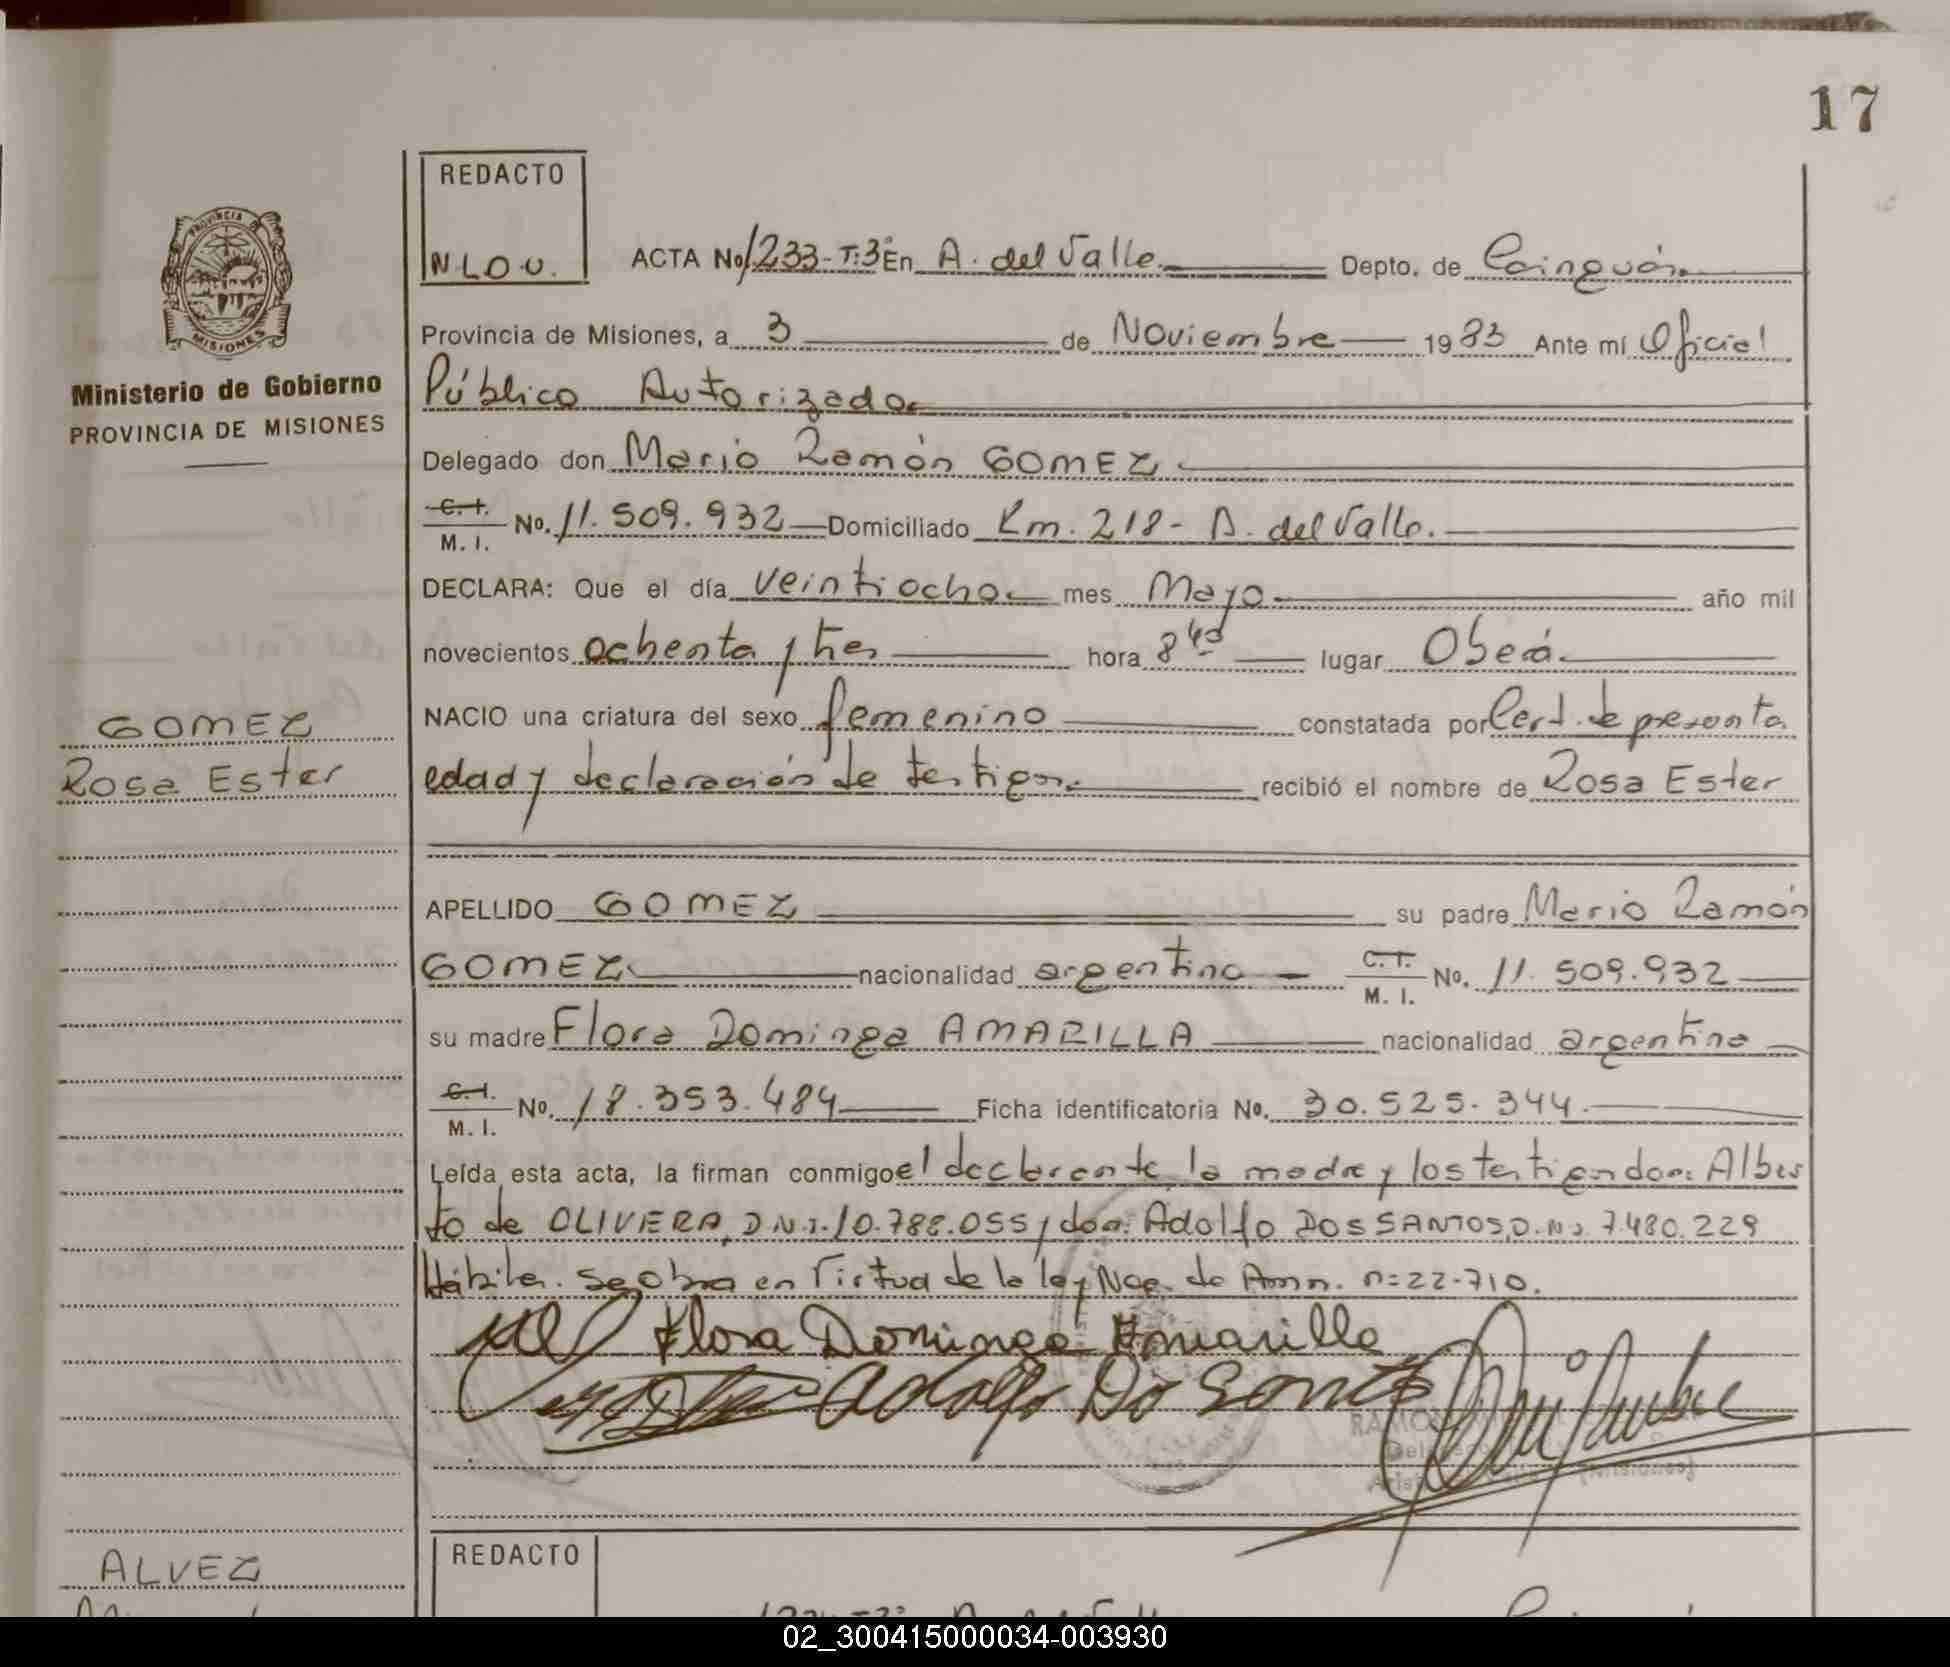 17
REDACTO
N.L.O.U.
PROVINCIA DE
MISIONES
Ministerio de Gobierno
PROVINCIA DE MISIONES
ACTA No/233-T:3º En A. del Valle. Depto. de Cainguás.
Provincia de Misiones, a 3 de Noviembre 1983 Ante mí Oficial
Público Autorizado.
Delegado don Mario Ramón GOMEZ.
C.I. M.I. No. 11.509.932 Domiciliado Km. 218 - A. del Valle.
DECLARA: Que el día veintiocho. mes Mayo. año mil
novecientos ochenta y tres hora 8 40 lugar Oberá.
NACIO una criatura del sexo femenino constatada por Cert. de presenta
edad y declaración de testigos. recibió el nombre de Rosa Ester
GOMEZ
Rosa Ester
APELLIDO GOMEZ su padre Mario Ramón
GOMEZ. nacionalidad argentino C.I. M.I. No. 11.509.932
su madre Flora Dominga AMARILLA nacionalidad argentina
C.I. M.I. No. 18.353.484 Ficha identificatoria No. 30.525.344.
Leída esta acta, la firman conmigo el declarante, la madre y los testigos don: Alber
to de OLIVERA, D.N.I. 10.788.055 y don: Adolfo DOS SANTOS, D.N.I. 7.480.229
Hábiles. Se obra en Virtud de la ley Nac. de Amn. n=22-710.
Flora Dominga Amarilla
Adolfo Do Santo
RAMÓN
ALVEZ
REDACTO
02_300415000034-003930